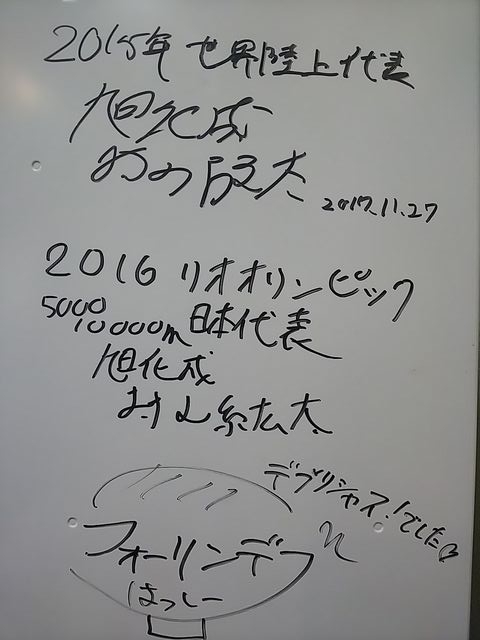 2015年 世界陸上代表
旭化成
村山謙太 2017.11.27
2016 リオオリンピック
5000
10000m 日本代表
旭化成
村山紘太
デブリシャス!でした♡
フォーリンデブ
はっしー